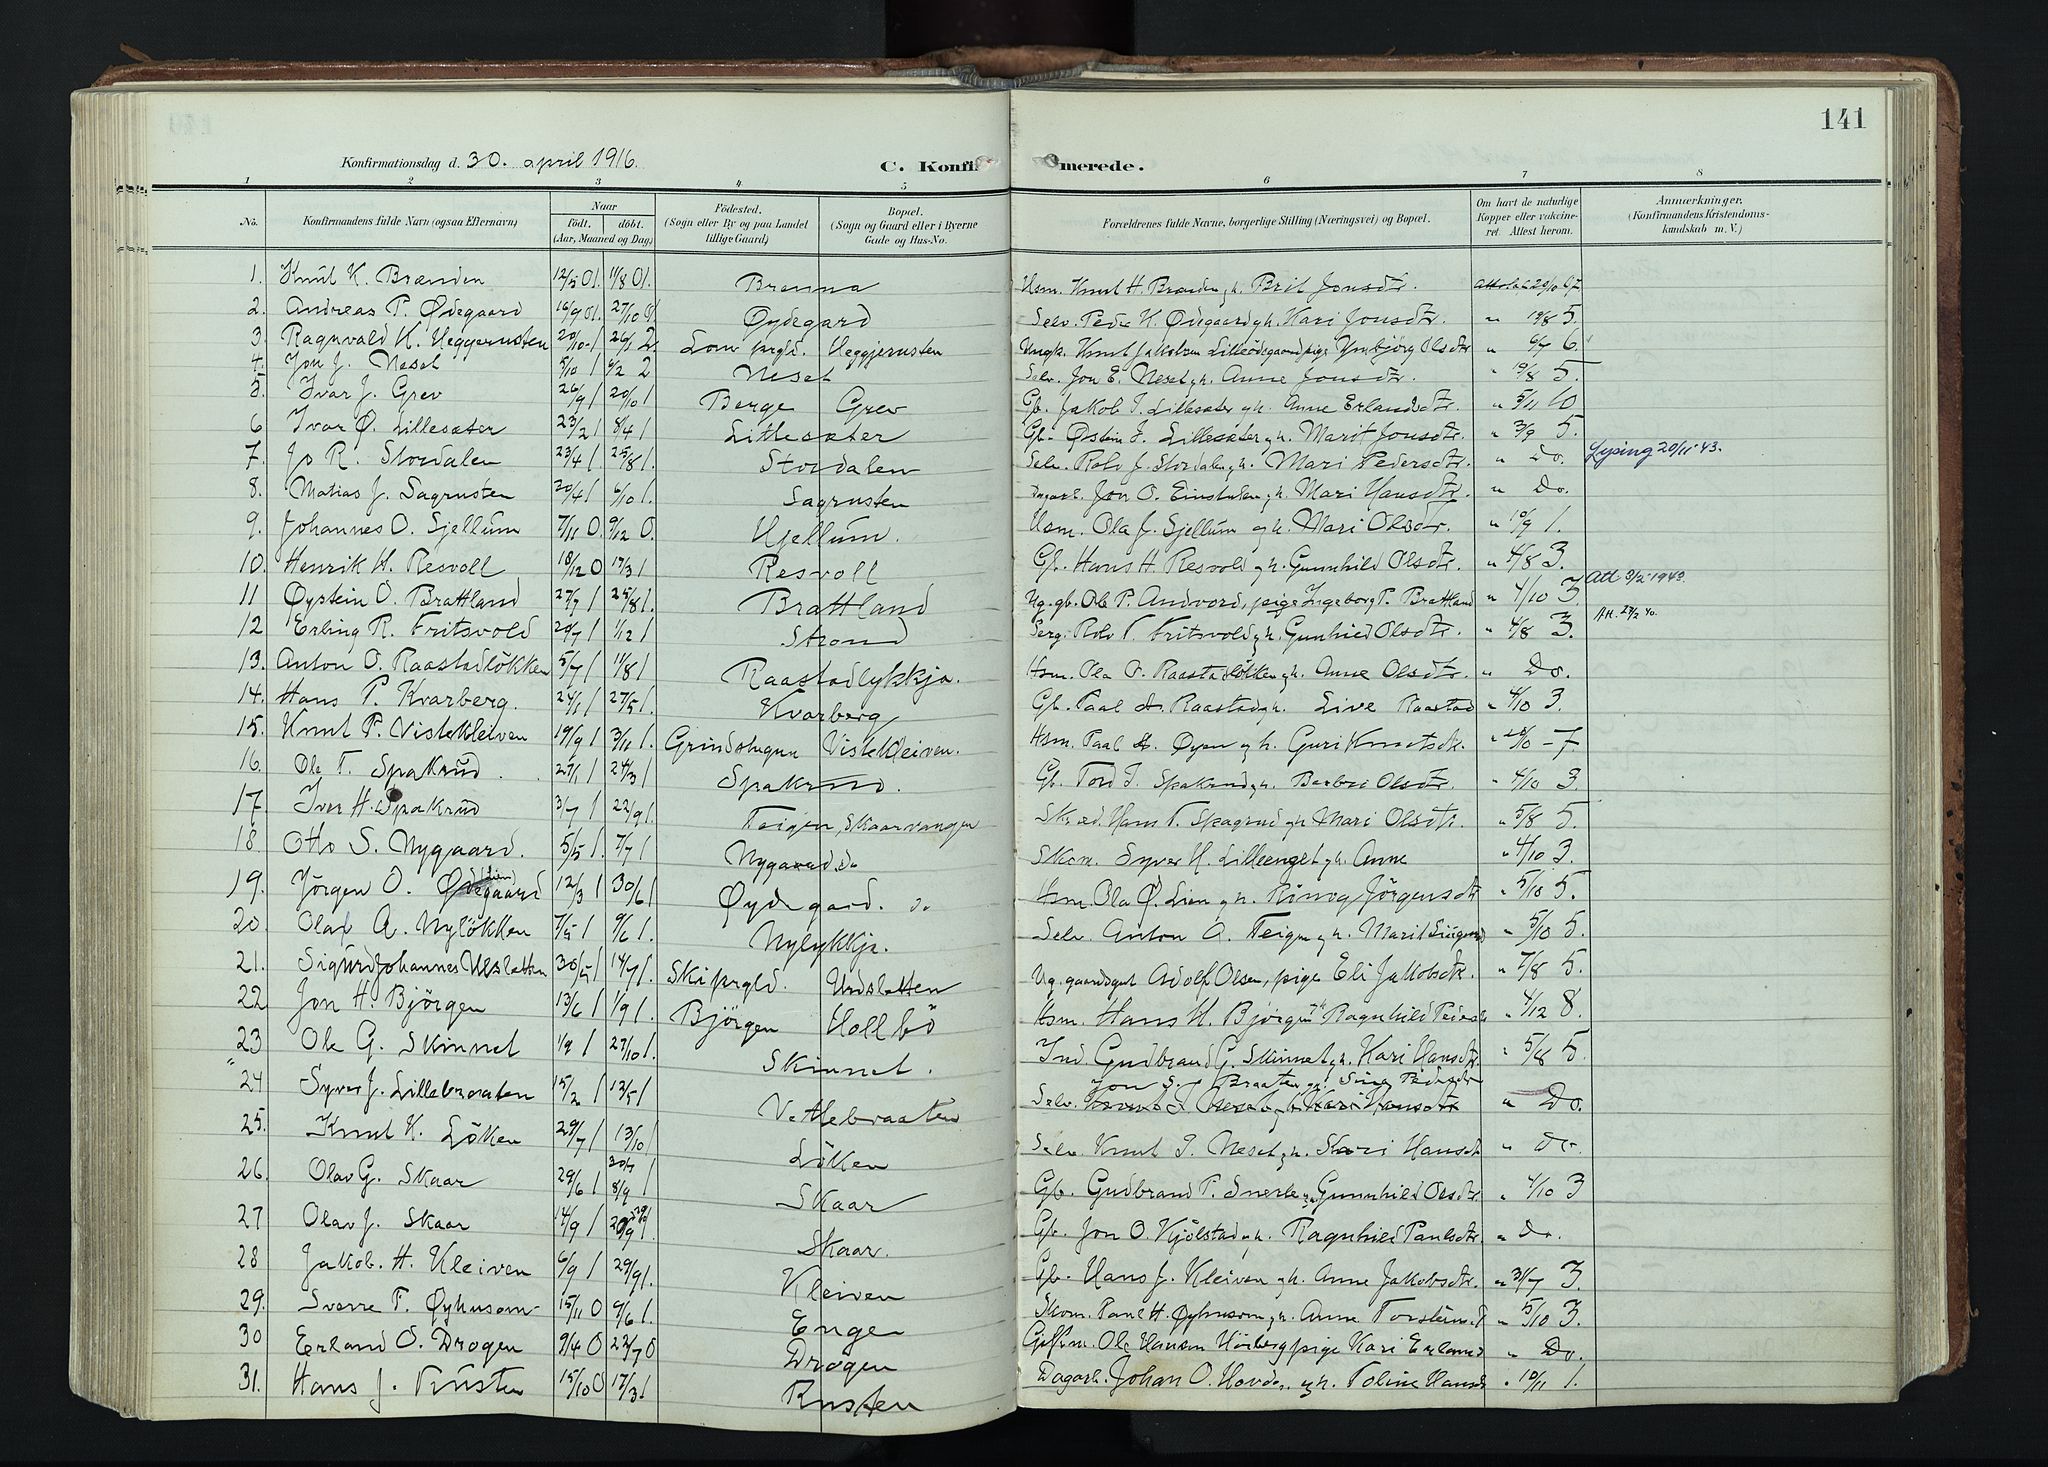 141
Konfirmationsdag d. 30. april 1916.
C. Konfir merede.
1 2 3 4 5 6 7 8
No. Konfirmandens fulde Navn (ogsaa Efternavn) Naar født. døbt. (Aar, Maaned og Dag) Födested. (Sogn eller By og paa Landet tillige Gaard) Bopæl. (Sogn og Gaard eller i Byerne Gade og Hus-No. Forældrenes fulde Navne, borgerlige Stilling (Næringsvei) og Bopæl. Om havt de naturlige Kopper eller vakcineret. Attest herom. Anmærkninger. (Konfirmandens Kristendomskundskab m. V.)
1. Knut K. Brænden 12/5 01. 11/8 01. Brenna Usm. Knut H. Brænden g.h. Brit Jonsdtr. 20/10 07
2. Andreas P. Ødegaard 16/9 01. 27/10 01. Øydegard Selv. Peder K. Ødegaard g.h. Kari Jonsdtr. " 19/8 5.
3. Ragnvald K. Heggerusten 20/10 1 26/1 2 Lom prgld. Heggjerusten Ungk. Knut Jakobsen Lilleödegaard pige Ymbjörg Olsdtr " 6/7 6.
4. Jon J. Neset 5/10 1 6/2 2 Neset Selv. Jon E. Neset g.h. Anne Jonsdtr. " 19/8 5.
5. Ivar J. Grev 26/9 1 20/10 1 Berge Grev Gb. Jakob I. Lillesæter g.h. Anne Erlandsdtr. " 5/11 10
6. Ivar Ø. Lillesæter 23/2 1 8/4 1 Litlesæter Gb. Østein J. Lillesæter g.h. Marit Jonsdtr. " 3/9 5.
7. Jo R. Stordalen 23/4 1 25/8 1. Stordalen Selv. Rolv J. Stordalen g.h. Mari Pedersdtr. " Do. Lysing 20/11-43.
8. Matias J. Sagrusten 30/4 1 6/10 1. Sagrusten Dagarb. Jon O. Einstulen g.h. Mari Hansdtr. " Do.
9. Johannes O. Sjellum 7/11 0 9/12 0. Hjellum. Usm. Ola J. Sjellum g.h. Mari Olsdtr. " 10/9 1.
10. Henrik H. Resvoll 18/12 0 17/3 1 Resvoll Gb. Hans H. Resvold g.h. Gunnhild Olsdtr. " 4/8 3.
11 Øystein O. Brattland 27/7 1 25/8 1. Brattland Ug. gb. Ole P. Andvord, pige Ingeborg P. Brattland " 4/10 3. Att 3/2-1943.
12 Erling R. Fritsvold 20/7 1 1/12 1 Strond Serg. Rolv T. Fritsvold g.h. Gunhild Olsdtr. " 4/8 3. Att. 29/2 40.
13. Anton O. Raastadlökken 5/7 1 11/8 1 Raastadlykkja. Hsm. Ola O. Raastadlökken g.h. Anne Olsdtr. " Do.
14. Hans P. Kvarberg. 24/1 1 27/5 1. Kvarberg Gb. Paal A. Raastad g.h. Live Raastad " 4/10 3.
15. Knut P. Vistekleiven 19/9 1 3/11 1. Grindstugun Vistekleiven. Hsm. Paal A. Øyen g.h. Guri Knutsdtr. 7.
16. Ole T. Spakrud. 27/1 1 24/3 1 Spakrud. Gb. Tord I. Spakrud g.h. Barbro Olsdtr. " 4/10 3.
17. Iver H. Spakrud 3/7 1 22/9 1. Teigen, Skaarvangen Hans T. Spagrud g.h. Mari Olsdtr. " 5/8 5.
18. Otto S. Nygaard. 5/5 1. 7/7 1 Nygaard do Skom. Syver H. Lilleenget g.h. Anne " 4/10 3.
19. Jörgen O. Ødegaard (Lien) 12/3 1 30/6 1 Øydegard. do Hsm. Ola Ø. Lien g.h. Rönnog Jörgensdtr " 5/10 5.
20. Olaf A. Nylökken 7/5 1 9/6 1. Nylykkja. Selv. Anton O. Teigen g.h. Marit " 5/10 5.
21. Sigurd Johannes Ulsletten 30/5 1 14/7 1. Ski prgld. Undsletten Ug. gaardsgut Adolf Olsen, pige Eli Jakobsdtr. " 7/8 5.
22 Jon H. Bjørgen 13/6 1 1/9 1. Björgen Hollbö Hsm. Hans H. Bjørgen g.h. Ragnhild Pedersdtr " 4/12 8.
23 Ole G. Skinnet 1/9 1 27/10 1. Skinnet. Ind. Gudbrand G. Skinnet g.h. Kari Hansdtr. " 5/8 5.
24 Syver J. Lillebraaten 15/2 1 12/5 1 Vetlebraaten Selv. Jon S. Braaten g.h. Pedersdtr Knut I. Neset g.h. Kari Hansdtr " Do.
25. Knut K. Löken 29/7 1 13/10 1 Löken Selv. Knut I. Neset g.h. Kari Hansdtr " Do.
26. Olav G. Skaar 29/6 1 8/9 1 Skaar Gb. Gudbrand P. Snerle g.h. Gunnhild Olsdtr. " 4/10 3
27 Olav J. Skaar 14/9 1 Skaar. Gb. Jon O. Kjölstad g.h. Ragnhild Paulsdtr. " Do.
28 Jakob. H. Kleiven 6/9 1 29/9 1. Kleiven Gb. Hans J. Kleiven g.h. Anne Jakobsdtr. " 31/7 3.
29. Sverre P. Øyhusom 15/11 0 9/6 1. Enge Skom. Paul H. Øyhusom g.h. Anne " 5/10 3.
30 Erland O. Drogen 9/4 0 22/7 0 Drogen Giftm. Ole Hansen Höiberg pige Kari Erlands " Do.
31. Hans J. Rusten 15/10 0 17/3 1 Rusten Dagarb. Johan O. Hovde g.h. Toline Hansdtr " 10/11 1.